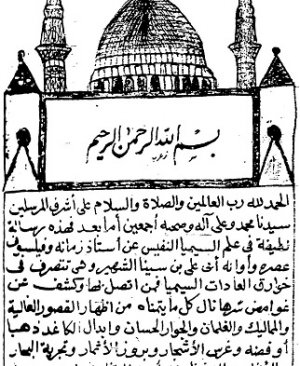 بسم الله الرحمن الرحيم
الحمد لله رب العالمين والصلاة والسلام على أشرف المرسلين
سيدنا محمد وعلى آله وصحبه أجمعين أما بعد فهذه رسالة
لطيفة في علم السيميا النفيس عن أستاذ زمانه وفيلسوف
عصره وأوانه أبى على بن سينا الشهير وهى تتصرف فى
خوارق العادات السيميا فمن اتصل بها وكشف عن
غوامض سرها نال كل ما يتمناه من اظهار القصور العالية
والماليك والغلمان والجوار الحسان وابدال الكاغد ذهبا
أو فضة وغرس الأشجار وبروز الأثمار وتجربة البحار